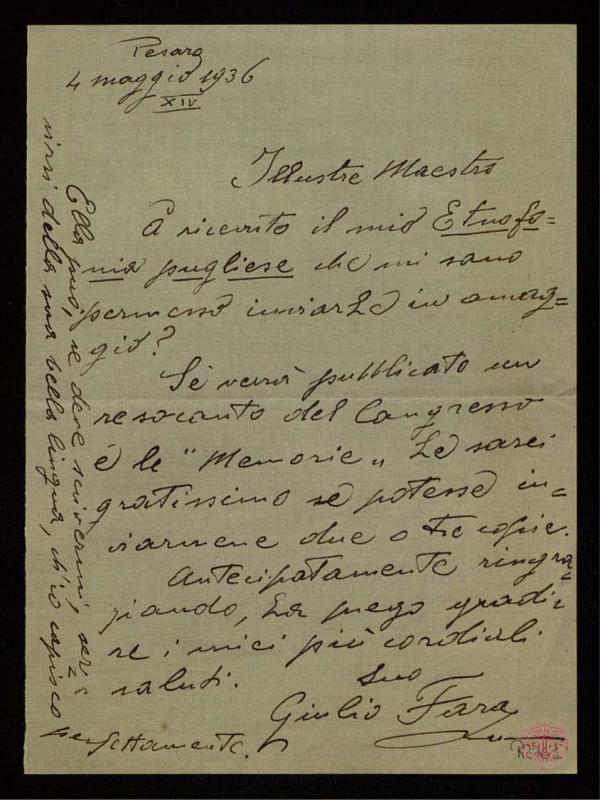 Pesaro
4 maggio 1936
XIV
Illustre Maestro
A ricevuto il mio Etnofo=
nia pugliese che mi sono
permesso inviarLe in omag=
gio?
Se verrà pubblicato un
resoconto del Congresso
e le "Memorie" Le sarei
gratissimo se potesse in=
viarmene due o tre copie.
Antecipatamente ringra=
ziando, La prego gradi=
re i miei più cordiali
saluti.
Suo
Giulio Fara
Ella può, se deve scrivermi, ser=
virsi della sua bella lingua, ch'io capisco perfettamente.